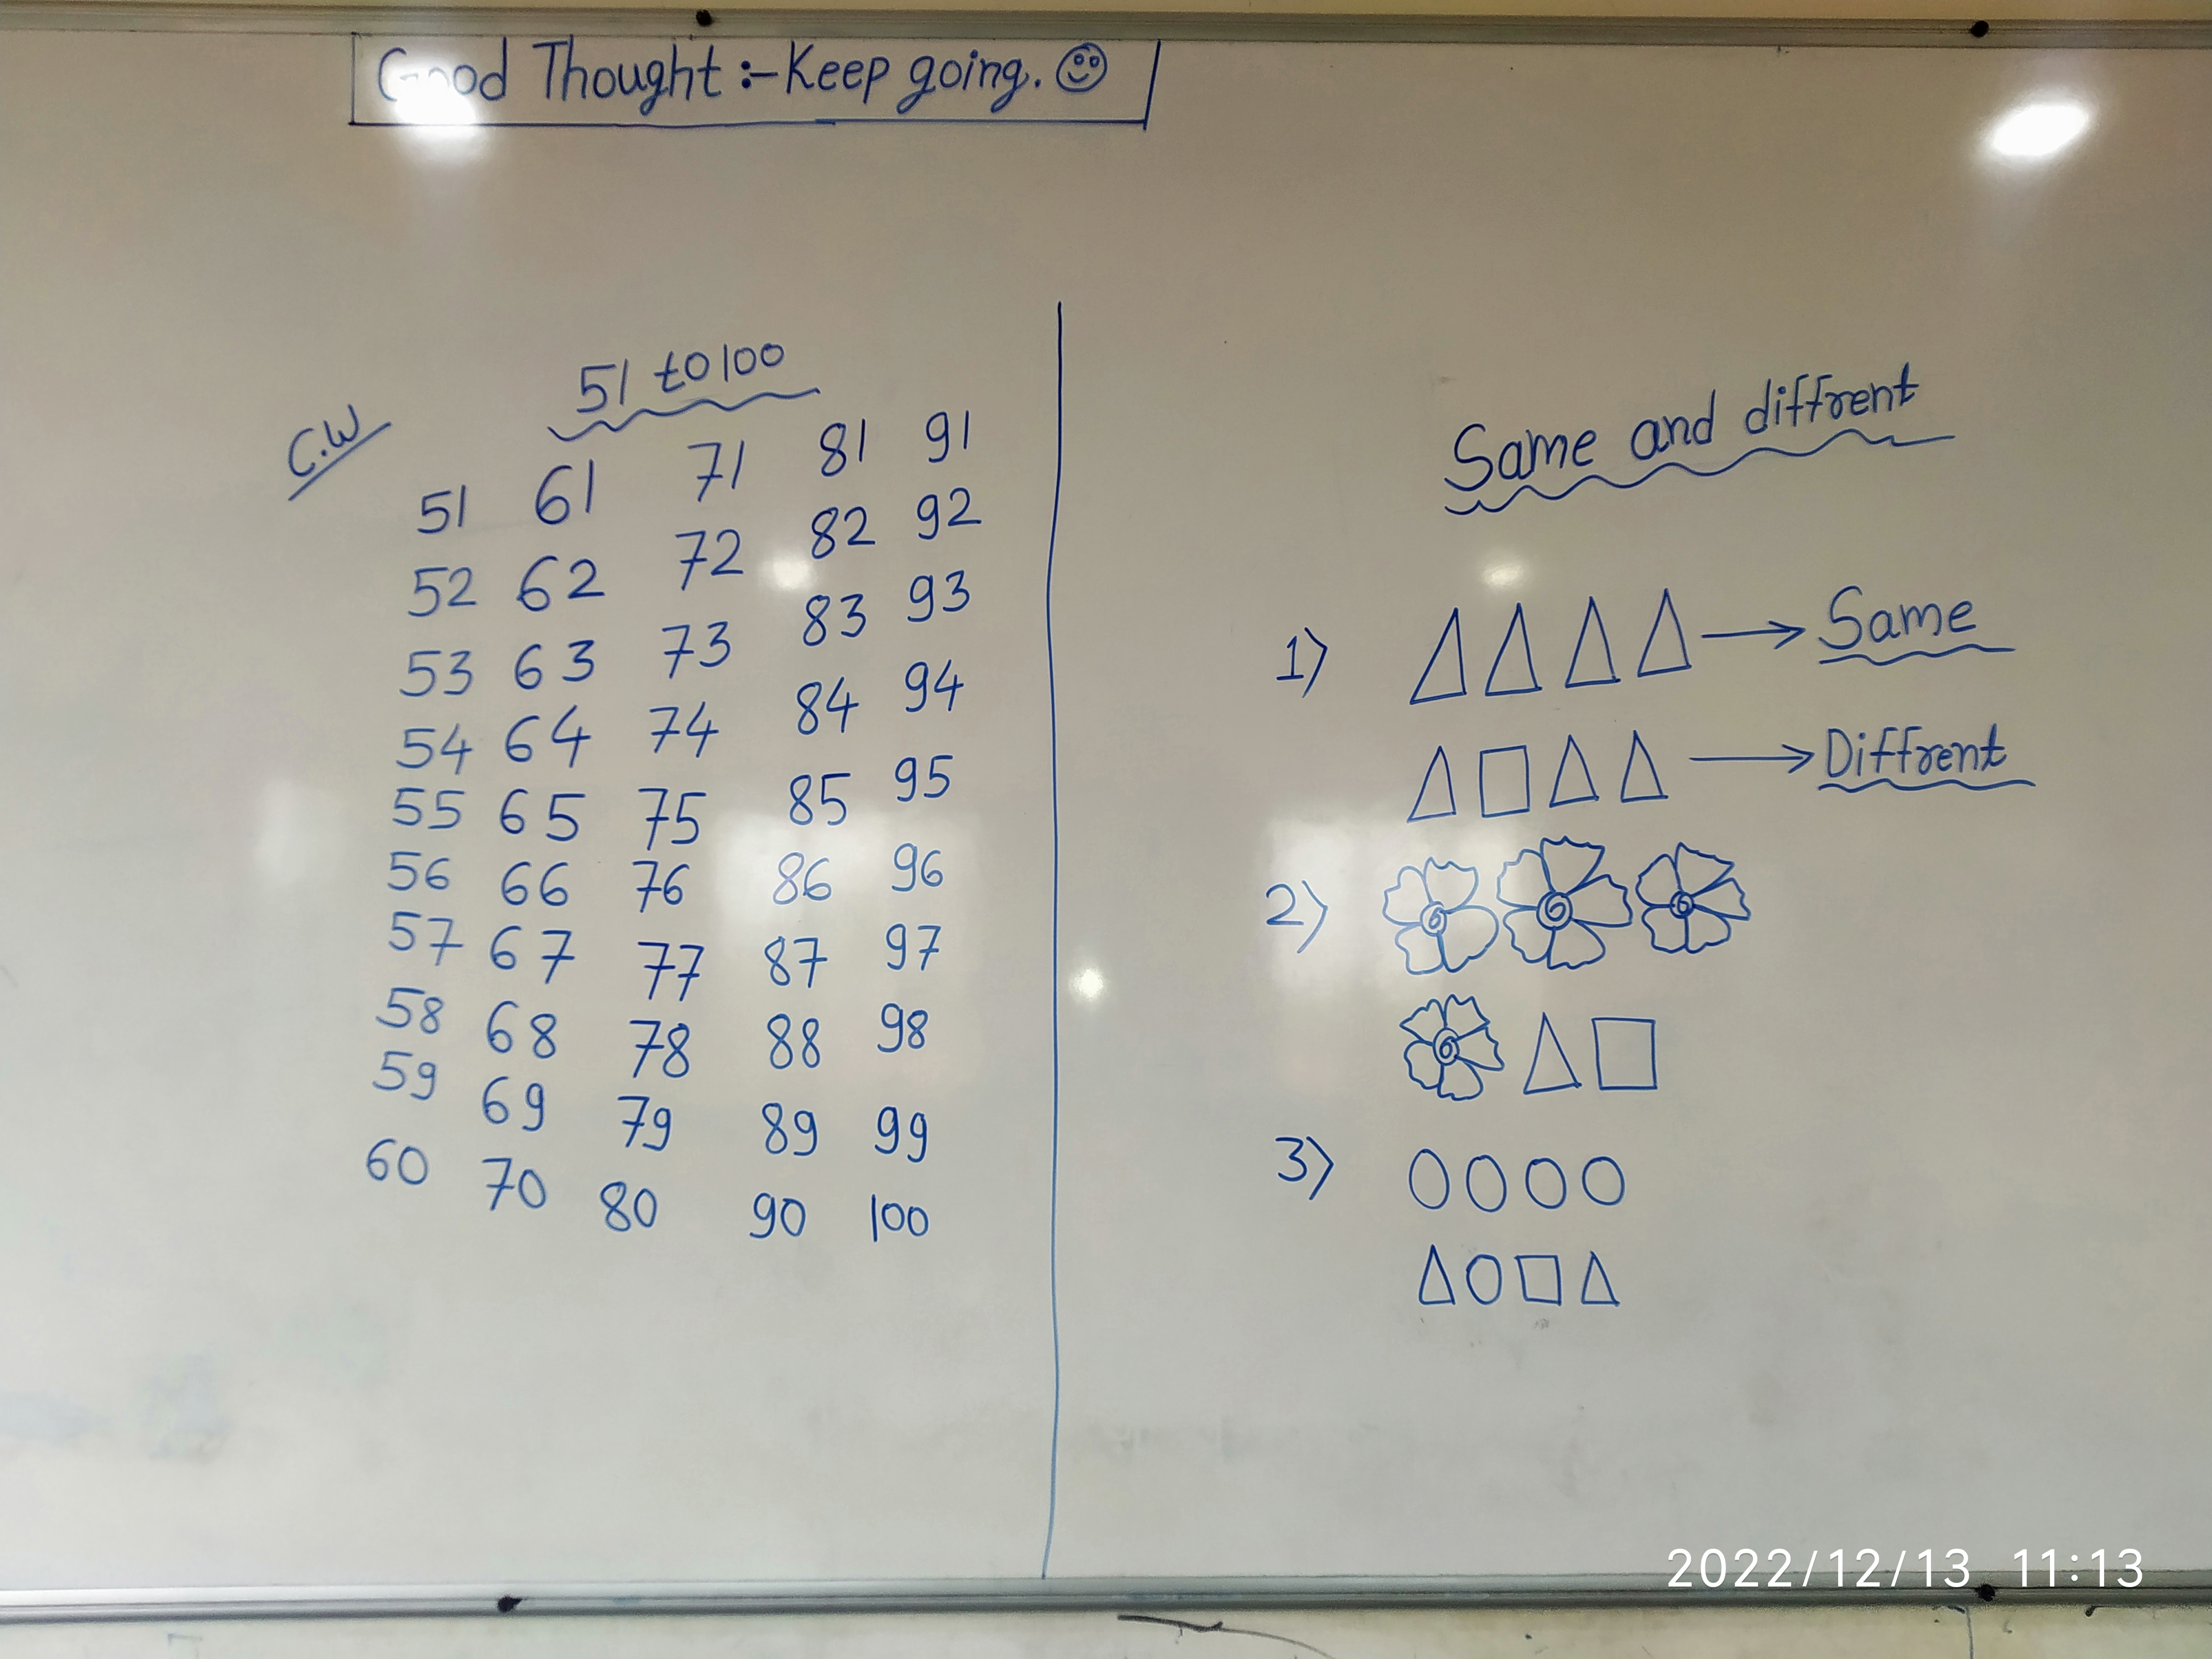 Good Thought :- Keep going.
C.W
51 to 100
51 61 71 81 91
52 62 72 82 92
53 63 73 83 93
54 64 74 84 94
55 65 75 85 95
56 66 76 86 96
57 67 77 87 97
58 68 78 88 98
59 69 79 89 99
60 70 80 90 100
Same and diffrent
1) → Same
→ Diffrent
2)
3)
2022/12/13 11:13